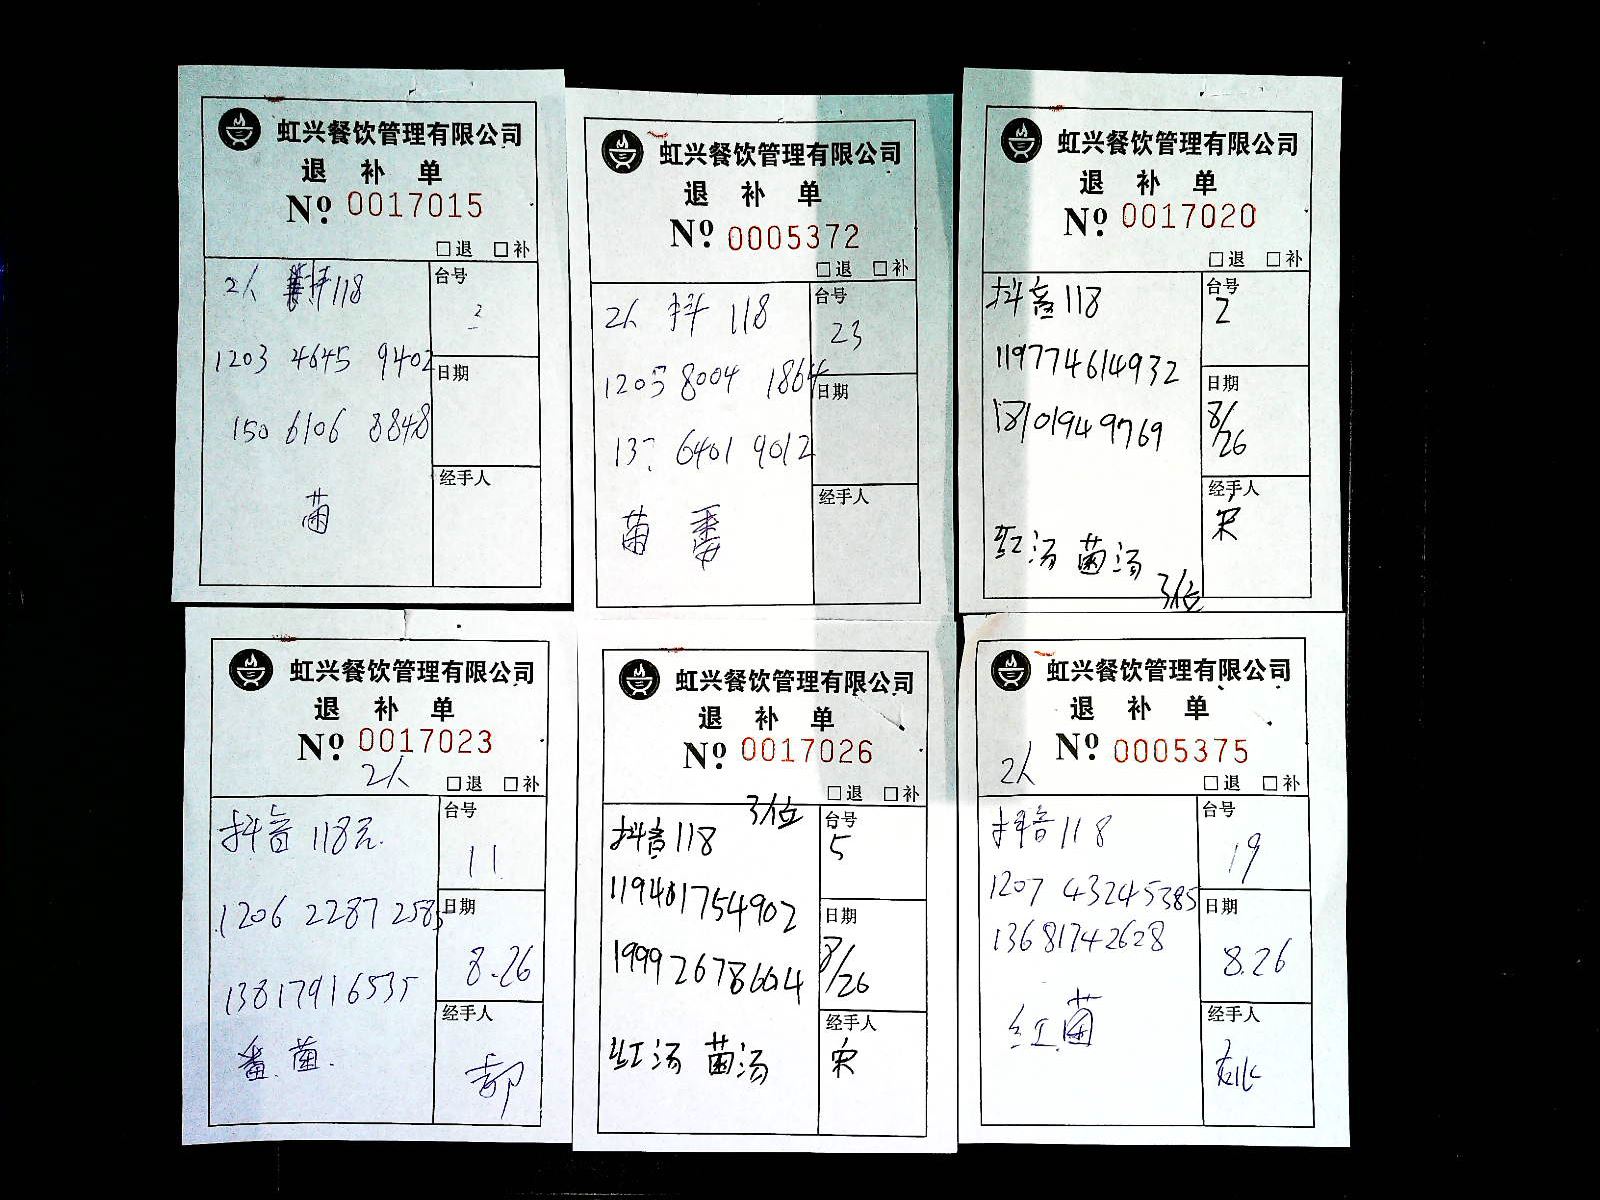 虹兴餐饮管理有限公司
退 补 单
No. 0017015
□退 □补
2人 抖118
台号
2
1203 4645 9402
日期
150 6106 8848
经手人
菌
虹兴餐饮管理有限公司
退 补 单
No. 0005372
□退 □补
2人 抖 118
台号
23
1205 8004 1864
日期
13 6401 9012
经手人
菌 番
虹兴餐饮管理有限公司
退 补 单
No. 0017020
□退 □补
抖音118
台号
2
119774614932
日期
8/26
18101949769
经手人
宋
红汤 菌汤
3位
虹兴餐饮管理有限公司
退 补 单
No. 0017023
2人
□退 □补
抖音 118元.
台号
11
1206 2287 2585
日期
8.26
13817916535
经手人
郝
番. 菌.
虹兴餐饮管理有限公司
退 补 单
No. 0017026
□退 □补
3位
抖音118
台号
5
119401754902
日期
8/26
19992678604
经手人
宋
红汤 菌汤
虹兴餐饮管理有限公司
退 补 单
No. 0005375
2人
□退 □补
抖音118
台号
19
1207 43245385
日期
8.26
13681742628
经手人
红菌